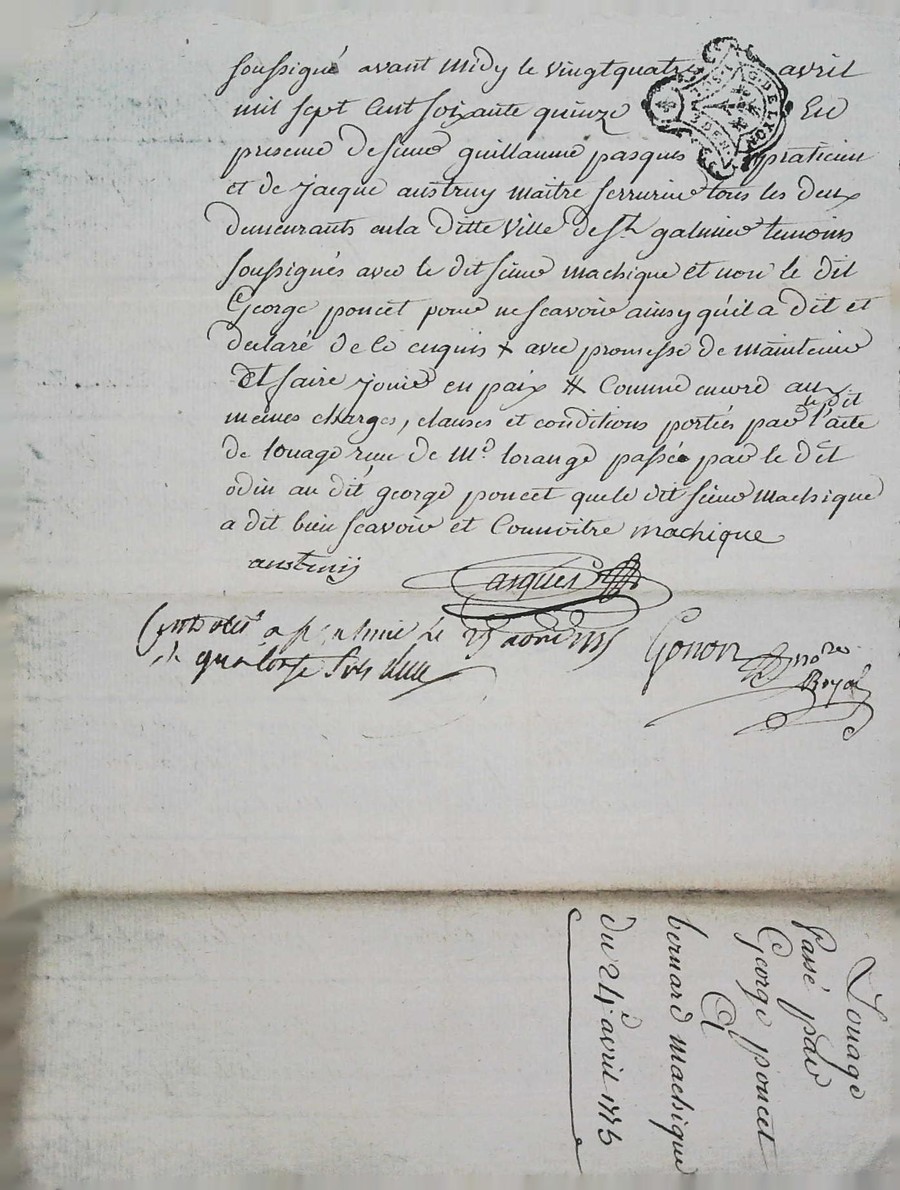 soussigné avant midy le vingtquatre avril
mil sept cent soixante quinze En
G. DE LYON
presence de sieur guillaume pasques praticien
et de jacque austruy maitre serrurier tous les deux
demeurants en la ditte ville de st galmier temoins
soussignés avec le dit sieur machique et non le dit
George poncet pour ne scavoir ainsy qu'il a dit et
declaré de ce enquis + avec promesse de maintenir
et faire jouir en paix # Comme encore aux
memes charges, clauses et conditions portées par l'acte
du dit
de louage de md lorange passée par le dit
odin au dit george poncet que le dit sieur machique
a dit bien scavoir et Connoitre machique
austruy
Pasques
a le 25 avril 1775
quatorze sols
Gonon no.re
Royal
Louage
passé par
George poncet
A
bernard machique
du 24 avril 1775